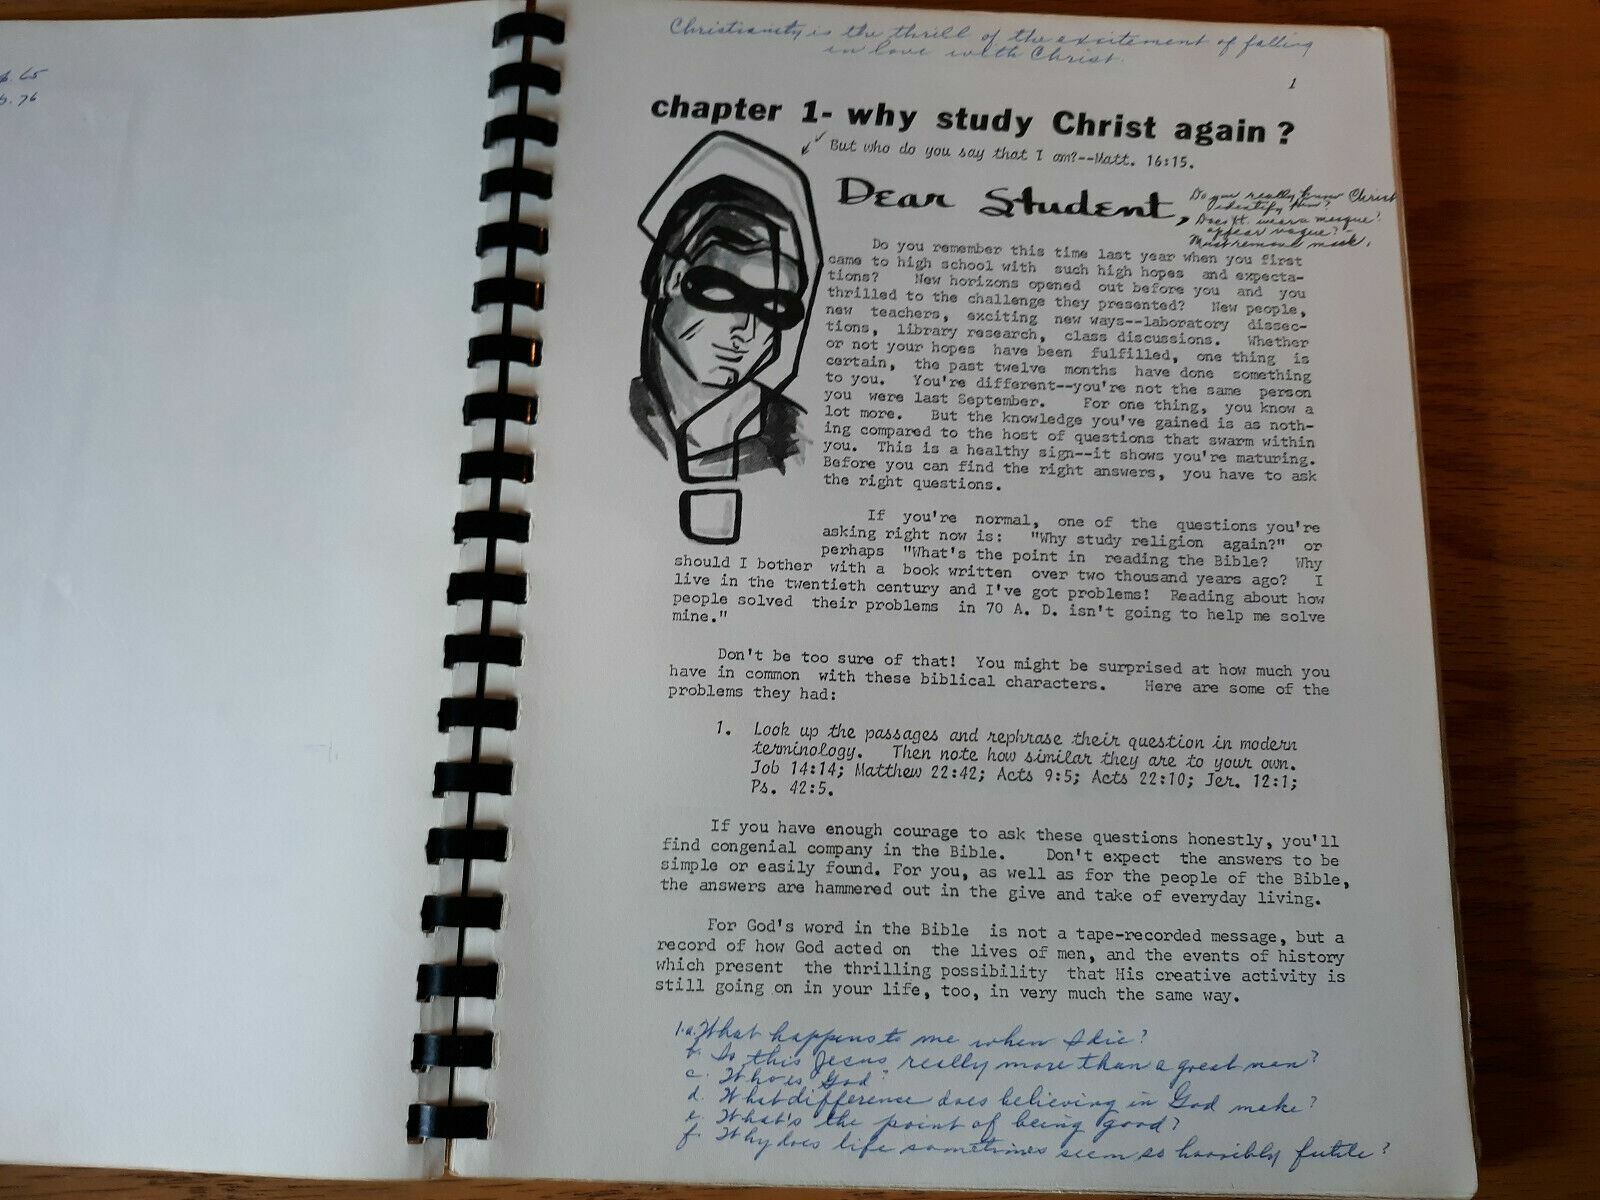 p. 65
p. 76
Christianity is the thrill of the excitement of falling
in love with Christ.
1
chapter 1- why study Christ again?
But who do you say that I am?--Matt. 16:15.
Dear Student,
Do you really know Christ
identify Him?
Does it wear a masque?
appear vague? -
Must remove mask.
Do you remember this time last year when you first
came to high school with such high hopes and expecta-
tions? New horizons opened out before you and you
thrilled to the challenge they presented? New people,
new teachers, exciting new ways--laboratory dissec-
tions, library research, class discussions. Whether
or not your hopes have been fulfilled, one thing is
certain, the past twelve months have done something
to you. You're different--you're not the same person
you were last September. For one thing, you know a
lot more. But the knowledge you've gained is as noth-
ing compared to the host of questions that swarm within
you. This is a healthy sign--it shows you're maturing.
Before you can find the right answers, you have to ask
the right questions.
If you're normal, one of the questions you're
asking right now is: "Why study religion again?" or
perhaps "What's the point in reading the Bible? Why
should I bother with a book written over two thousand years ago? I
live in the twentieth century and I've got problems! Reading about how
people solved their problems in 70 A. D. isn't going to help me solve
mine."
Don't be too sure of that! You might be surprised at how much you
have in common with these biblical characters. Here are some of the
problems they had:
1. Look up the passages and rephrase their question in modern
terminology. Then note how similar they are to your own.
Job 14:14; Matthew 22:42; Acts 9:5; Acts 22:10; Jer. 12:1;
Ps. 42:5.
If you have enough courage to ask these questions honestly, you'll
find congenial company in the Bible. Don't expect the answers to be
simple or easily found. For you, as well as for the people of the Bible,
the answers are hammered out in the give and take of everyday living.
For God's word in the Bible is not a tape-recorded message, but a
record of how God acted on the lives of men, and the events of history
which present the thrilling possibility that His creative activity is
still going on in your life, too, in very much the same way.
1.a. What happens to me when I die?
b. Is this Jesus really more than a great man?
c. Who is God?
d. What difference does believing in God make?
e. What's the point of being good?
f. Why does life sometimes seem so horribly futile?